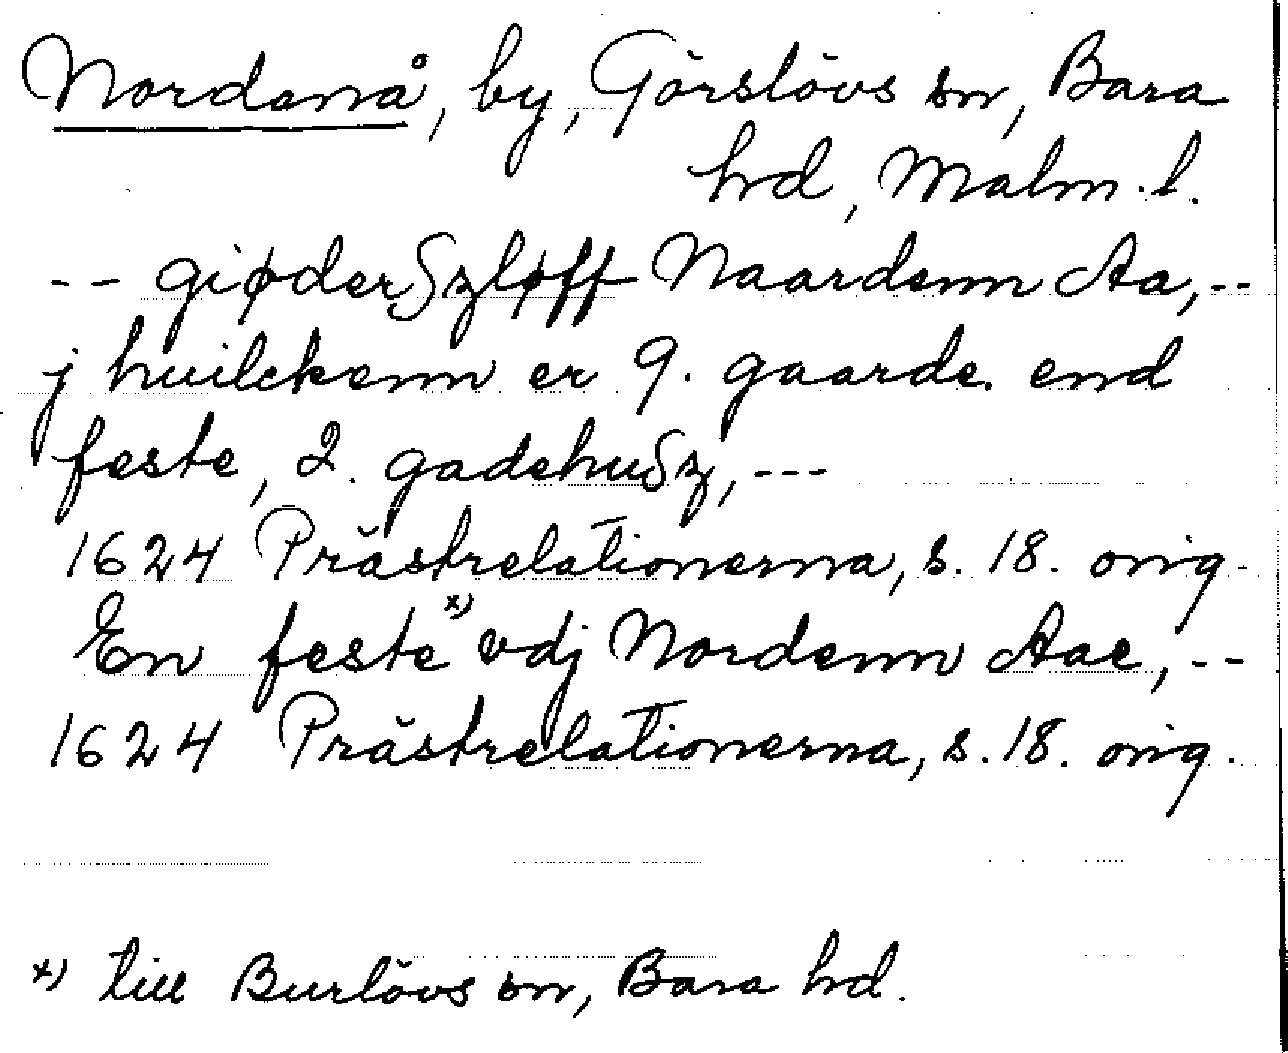 Nordanå, by, Görslövs sn, Bara
hrd, Malm. l.
-- giøderSzløff Naardenn Aa, --
j huilckenn er 9. gaarde. end
feste, 2. gadehuSz, ---
1624 Prästrelationerna, s. 18. orig.
En feste x) vdj Nordenn Aae, --
1624 Prästrelationerna, s. 18. orig.
x) till Burlövs sn, Bara hrd.